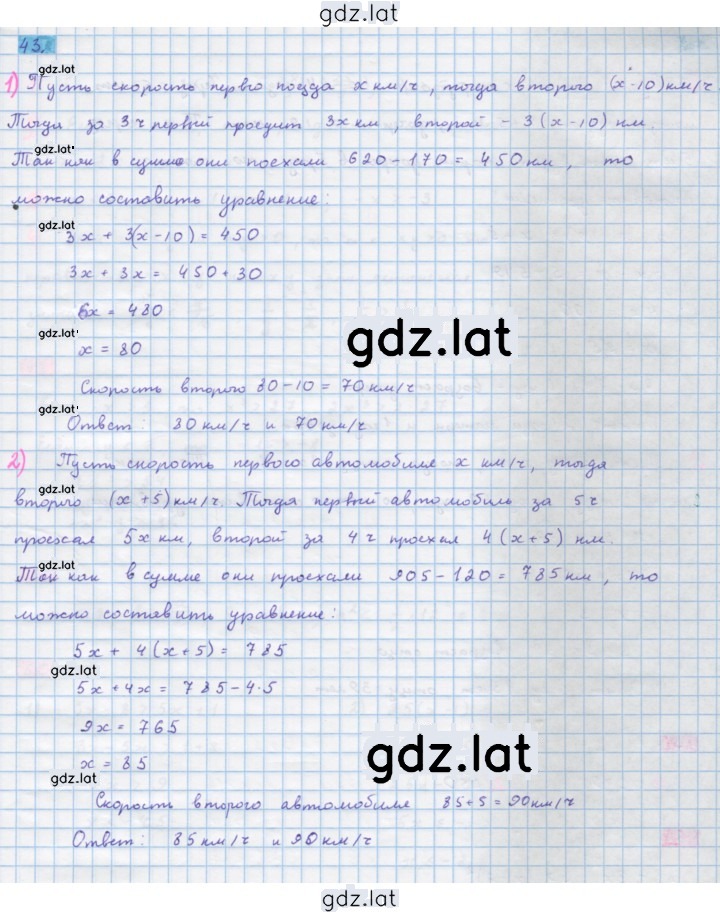 gdz.lat
43.
gdz.lat
1) Пусть скорость перво поезда x км/ч, тогда второго (x-10) км/ч
Тогда за 3 ч первый проедит 3x км, второй - 3(x-10) км.
gdz.lat
Так как в сумме они поехали 620-170 = 450 км, то
можно составить уравнение:
gdz.lat
3x + 3(x-10) = 450
3x + 3x = 450+30
6x = 480
gdz.lat
x = 80
gdz.lat
Скорость второго 80-10 = 70 км/ч
gdz.lat
Ответ: 80 км/ч и 70 км/ч
2) Пусть скорость первого автомобиле x км/ч, тогда
gdz.lat
второго (x+5) км/ч. Тогда первый автомобиль за 5 ч
проехал 5x км, второй за 4 ч проехал 4(x+5) км.
gdz.lat
Так как в сумме они проехали 905-120 = 785 км, то
можно составить уравнение:
5x + 4(x+5) = 785
gdz.lat
5x+4x = 785-4·5
9x = 765
gdz.lat
x = 85
gdz.lat
Скорость второго автомобиле 85+5 = 90 км/ч
Ответ: 85 км/ч и 90 км/ч
gdz.lat